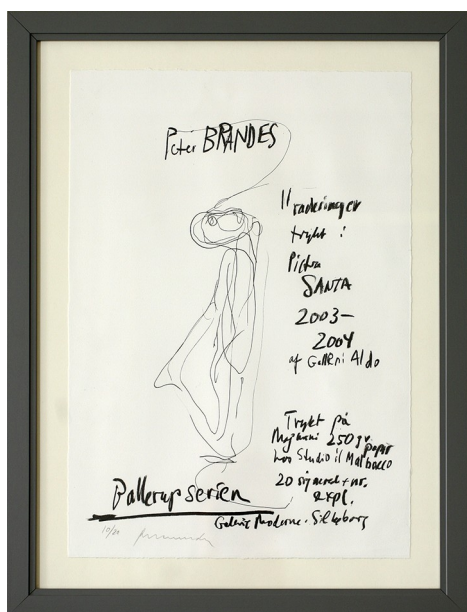 Peter BRANDES
11 raderinger
trykt i
Pietra
SANTA
2003–
2004
af Galleri Aldo
Trykt på
250 gr. papir
hos Studio il
20 signeret + nr.
expl.
Ballerupserien
Galerie Moderne. Silkeborg
10/20